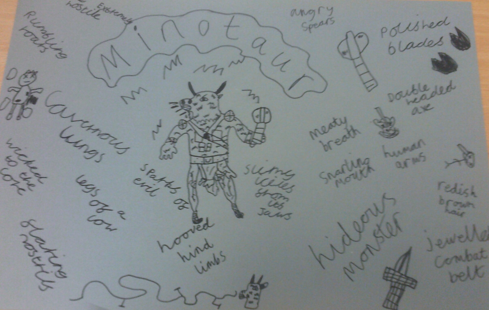 Minotaur
angry
spears
polished
blades
Rumbling
roars
Cavernous
lungs
double headed
axe
meaty
breath
human
arms
snarling
mouth
redish
brown
hair
wicked
to the
core
legs of a
cow
spaths of
evil
hooved
hind
limbs
hideous
monster
jewelled
combat
belt
nostrils